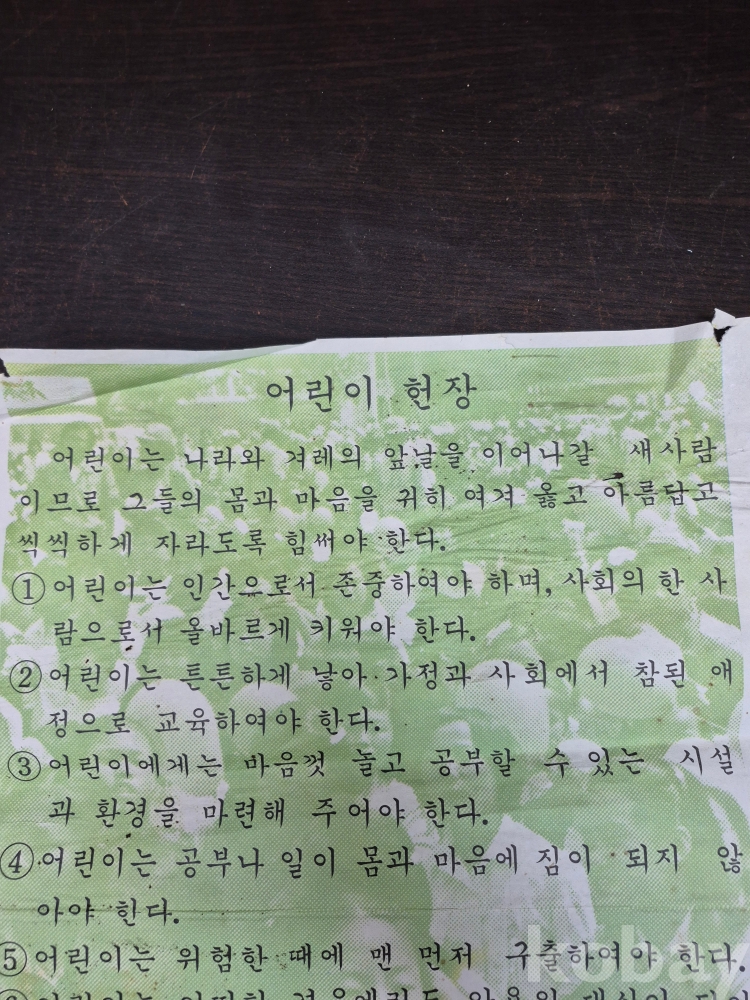 어린이 헌장
어린이는 나라와 겨레의 앞날을 이어나갈 새사람
이므로 그들의 몸과 마음을 귀히 여겨 옳고 아름답고
씩씩하게 자라도록 힘써야 한다.
① 어린이는 인간으로서 존중하여야 하며, 사회의 한 사
람으로서 올바르게 키워야 한다.
② 어린이는 튼튼하게 낳아 가정과 사회에서 참된 애
정으로 교육하여야 한다.
③ 어린이에게는 마음껏 놀고 공부할 수 있는 시설
과 환경을 마련해 주어야 한다.
④ 어린이는 공부나 일이 몸과 마음에 짐이 되지 않
아야 한다.
⑤ 어린이는 위험한 때에 맨 먼저 구출하여야 한다.
어린이는 어떠한 경우에라도 악용의 대상이
kobay